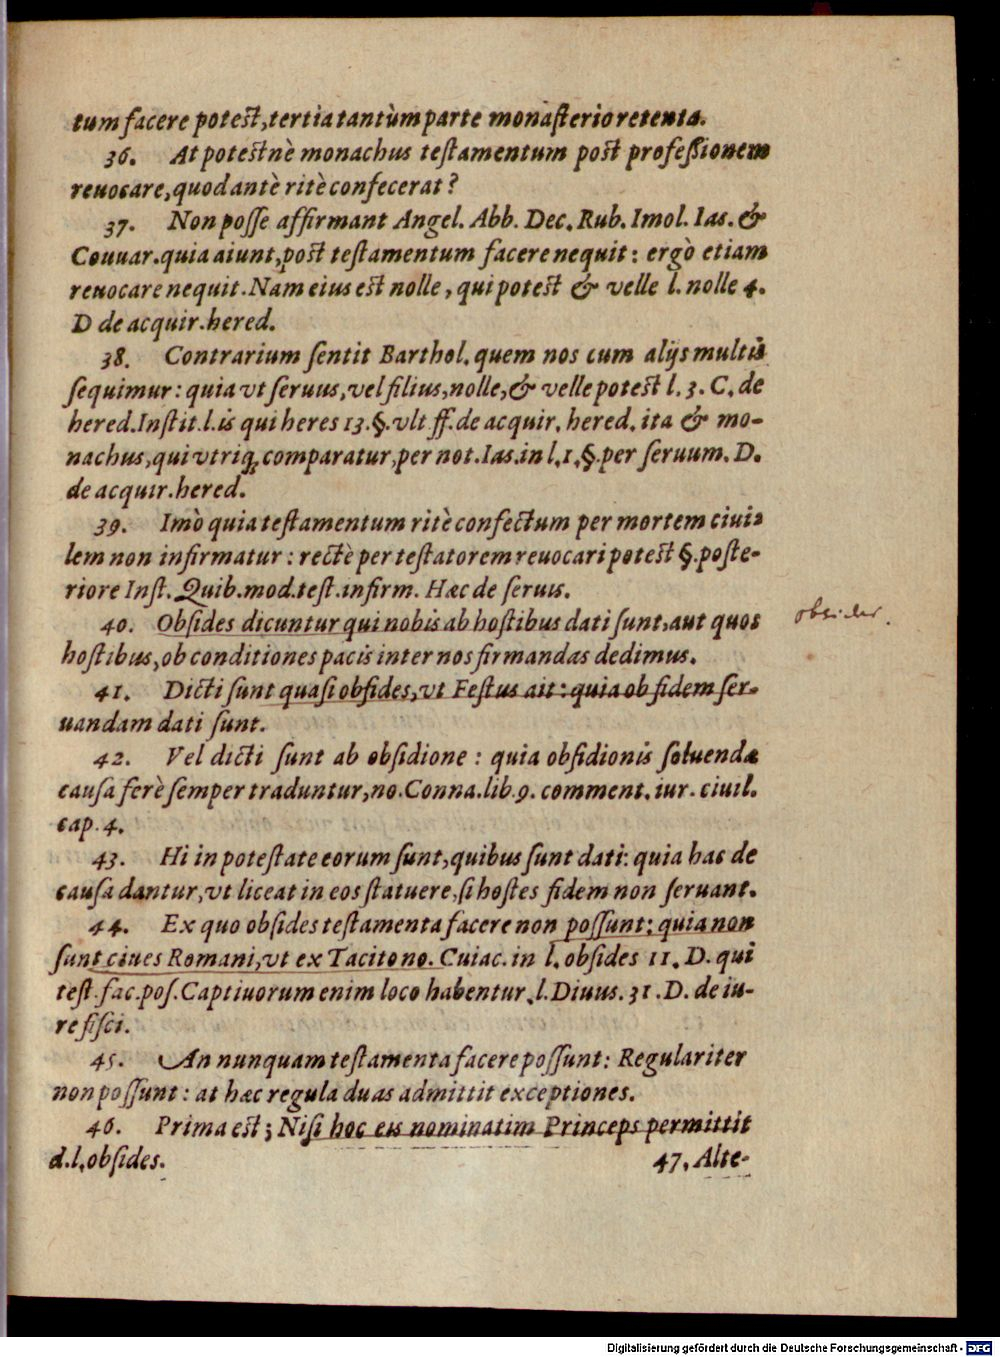 tum facere potest, tertia tantùm parte monasterio retenta.
36. At potestnè monachus testamentum post professionem
reuocare, quod antè ritè confecerat?
37. Non posse affirmant Angel. Abb. Dec. Rub. Imol. Ias. &
Couuar. quia aiunt, post testamentum facere nequit: ergò etiam
reuocare nequit. Nam eius est nolle, qui potest & velle l. nolle 4.
D de acquir. hered.
38. Contrarium sentit Barthol. quem nos cum alijs multis
sequimur: quia vt seruus, vel filius, nolle, & velle potest l. 3. C. de
hered. Instit. l. is qui heres 13. §. vlt ff. de acquir. hered. ita & mo-
nachus, qui vtriq; comparatur, per not. Ias. in l. 1. §. per seruum. D.
de acquir. hered.
39. Imò quia testamentum ritè confectum per mortem ciui-
lem non infirmatur: rectè per testatorem reuocari potest §. poste-
riore Inst. Quib. mod. test. infirm. Hæc de seruis.
40. Obsides dicuntur qui nobis ab hostibus dati sunt, aut quos
hostibus, ob conditiones pacis inter nos firmandas dedimus.
obsides.
41. Dicti sunt quasi obfides, vt Festus ait: quia ob fidem ser-
uandam dati sunt.
42. Vel dicti sunt ab obsidione: quia obsidionis soluendæ
causa ferè semper traduntur, no. Conna. lib. 9. comment. iur. ciuil.
cap. 4.
43. Hi in potestate eorum sunt, quibus sunt dati: quia hac de
causa dantur, vt liceat in eos statuere, si hostes fidem non seruant.
44. Ex quo obsides testamenta facere non possunt: quia non
sunt ciues Romani, vt ex Tacito no. Cuiac. in l. obsides 11. D. qui
test. fac. pos. Captiuorum enim loco habentur. l. Diuus. 31. D. de iu-
re fisci.
45. An nunquam testamenta facere possunt: Regulariter
non possunt: at hæc regula duas admittit exceptiones.
46. Prima est; Nisi hoc eis nominatim Princeps permittit
d. l. obsides.
47. Alte-
Digitalisierung gefördert durch die Deutsche Forschungsgemeinschaft - DFG